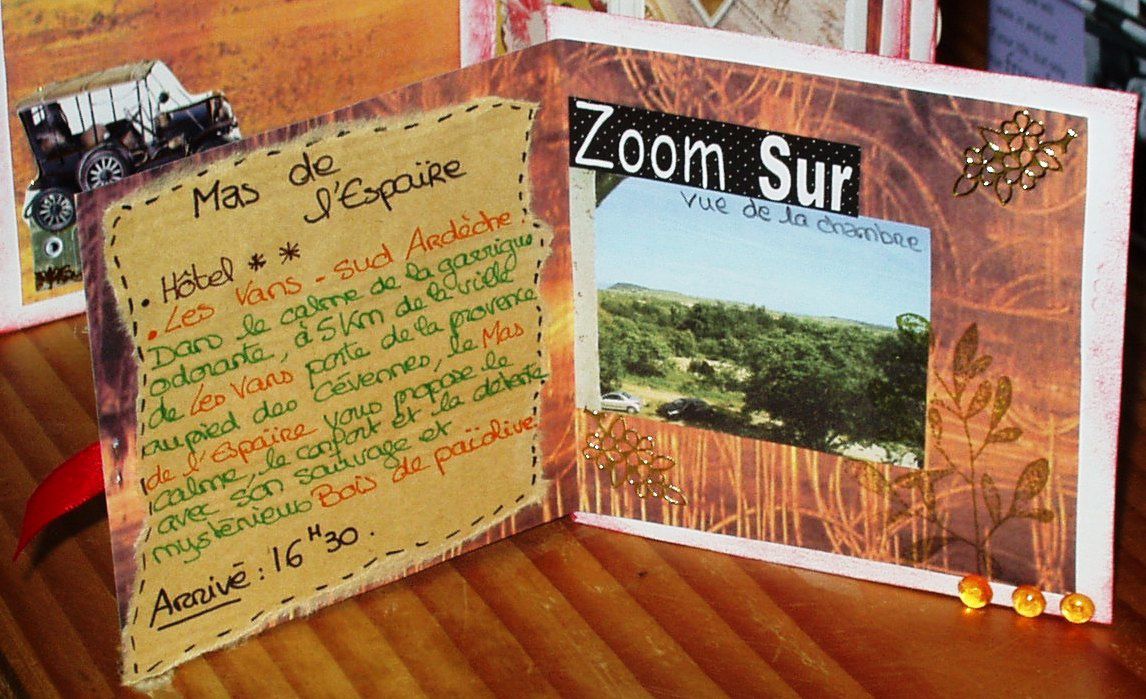 Mas de
l'Espaïre
. Hôtel * *
. Les Vans - Sud Ardèche.
Dans le calme de la garrigue
odorante, à 5 Km de la ville
de Les Vans porte de la provence
au pied des Cévennes, le Mas
de l'Espaïre vous propose le
calme, le confort et la détente
avec son sauvage et
mystérieux Bois de païolive.
Arrivé : 16H30.
Zoom Sur
vue de la chambre